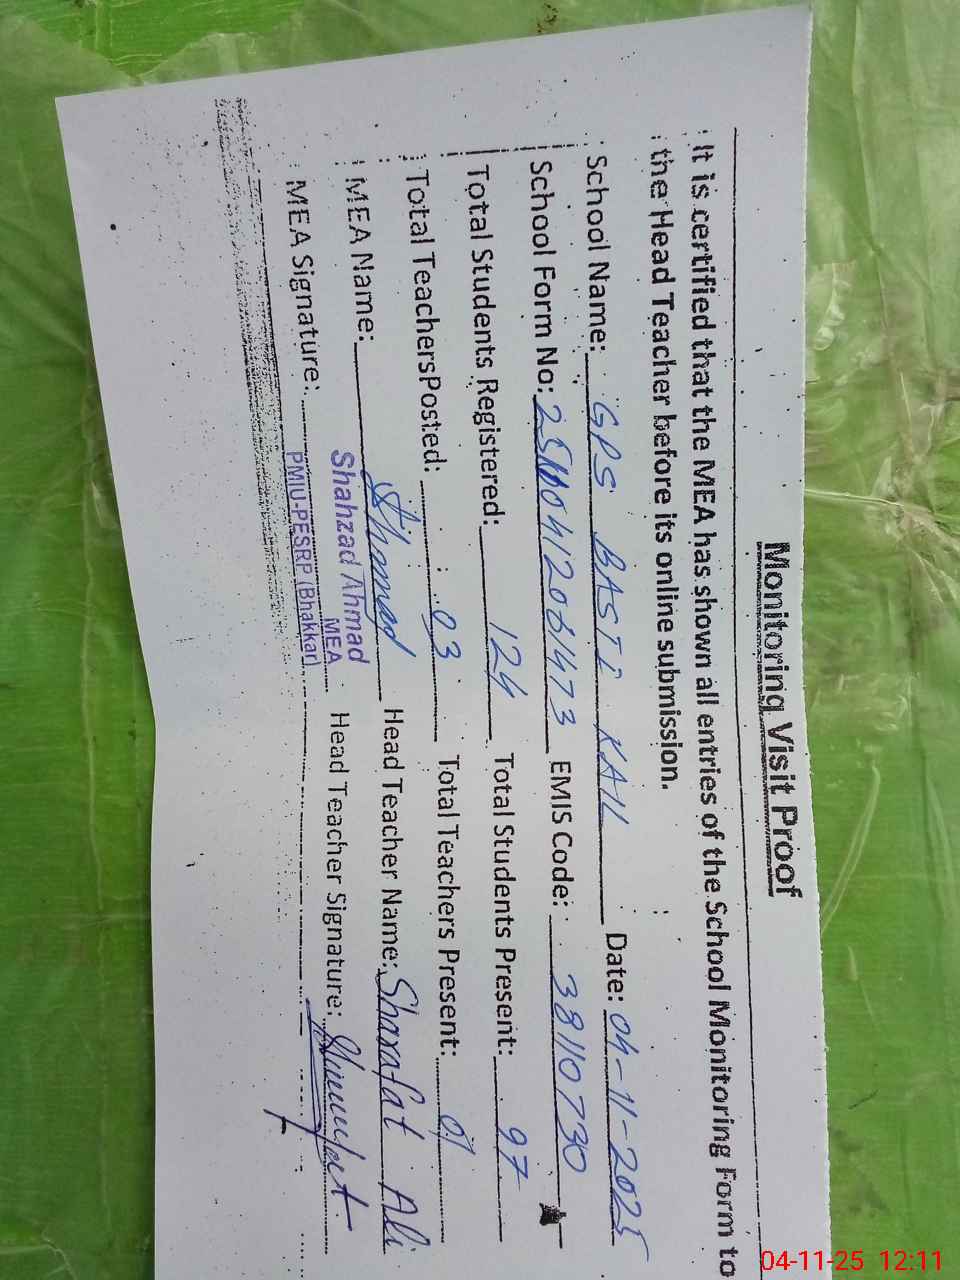 Monitoring Visit Proof
It is certified that the MEA has shown all entries of the School Monitoring Form to
the Head Teacher before its online submission.
School Name: GPS BASTI KAIL Date: 04-11-2025
School Form No: EMIS Code: 38110730
Total Students Registered: 124 Total Students Present: 97
Total TeachersPosted: 03 Total Teachers Present: 01
MEA Name: Ahmad Head Teacher Name: Sharafat Ali
MEA Signature: Head Teacher Signature:
Shahzad Ahmad
MEA
PMIU-PESRP (Bhakkar)
04-11-25 12:11